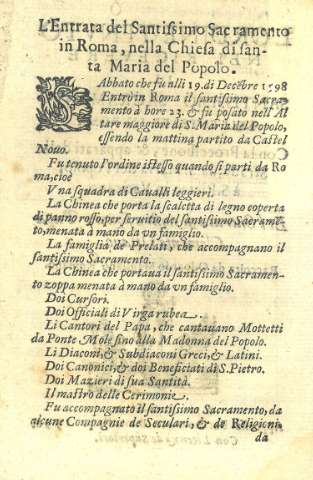 L'Entrata del Santissimo Sacramento
in Roma, nella Chiesa di san-
ta Maria del Popolo.
SAbbato che fu alli 19. di Decẽbre 1598
Entrò in Roma il santissimo Sacra-
mento à hore 23. & fù posato nell'Al
tare maggiore di S. Maria del Popolo,
essendo la mattina partito da Castel
Nouo.
Fu tenuto l'ordine istesso quando si parti da Ro
ma, cioè
Vna squadra di Caualli leggieri.
La Chinea che porta la scaletta di legno coperta
di panno rosso, per seruitio del santissimo Sacramẽ-
to, menata à mano da vn famiglio.
La famiglia de Prelati, che accompagnano il
santissimo Sacramento.
La Chinea che portaua il santissimo Sacramen-
to zoppa menata à mano da vn famiglio.
Doi Cursori.
Doi Officiali di Virga rubea.
Li Cantori del Papa, che cantauano Mottetti
da Ponte Mole sino alla Madonna del Popolo.
Li Diaconi, & Subdiaconi Greci, & Latini.
Doi Canonici, & doi Beneficiati di S. Pietro.
Doi Mazieri di sua Santità.
Il mastro delle Cerimonie.
Fu accompagnato il santissimo Sacramento, da
alcune Compagnie de Seculari, & de Religioni
da